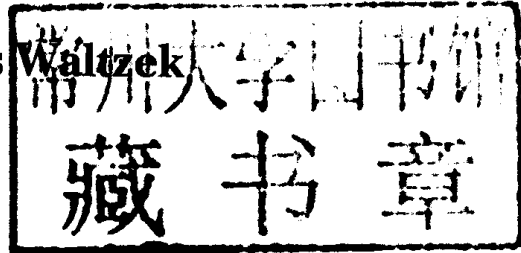 s Waltzek
常州大学图书馆
藏书章